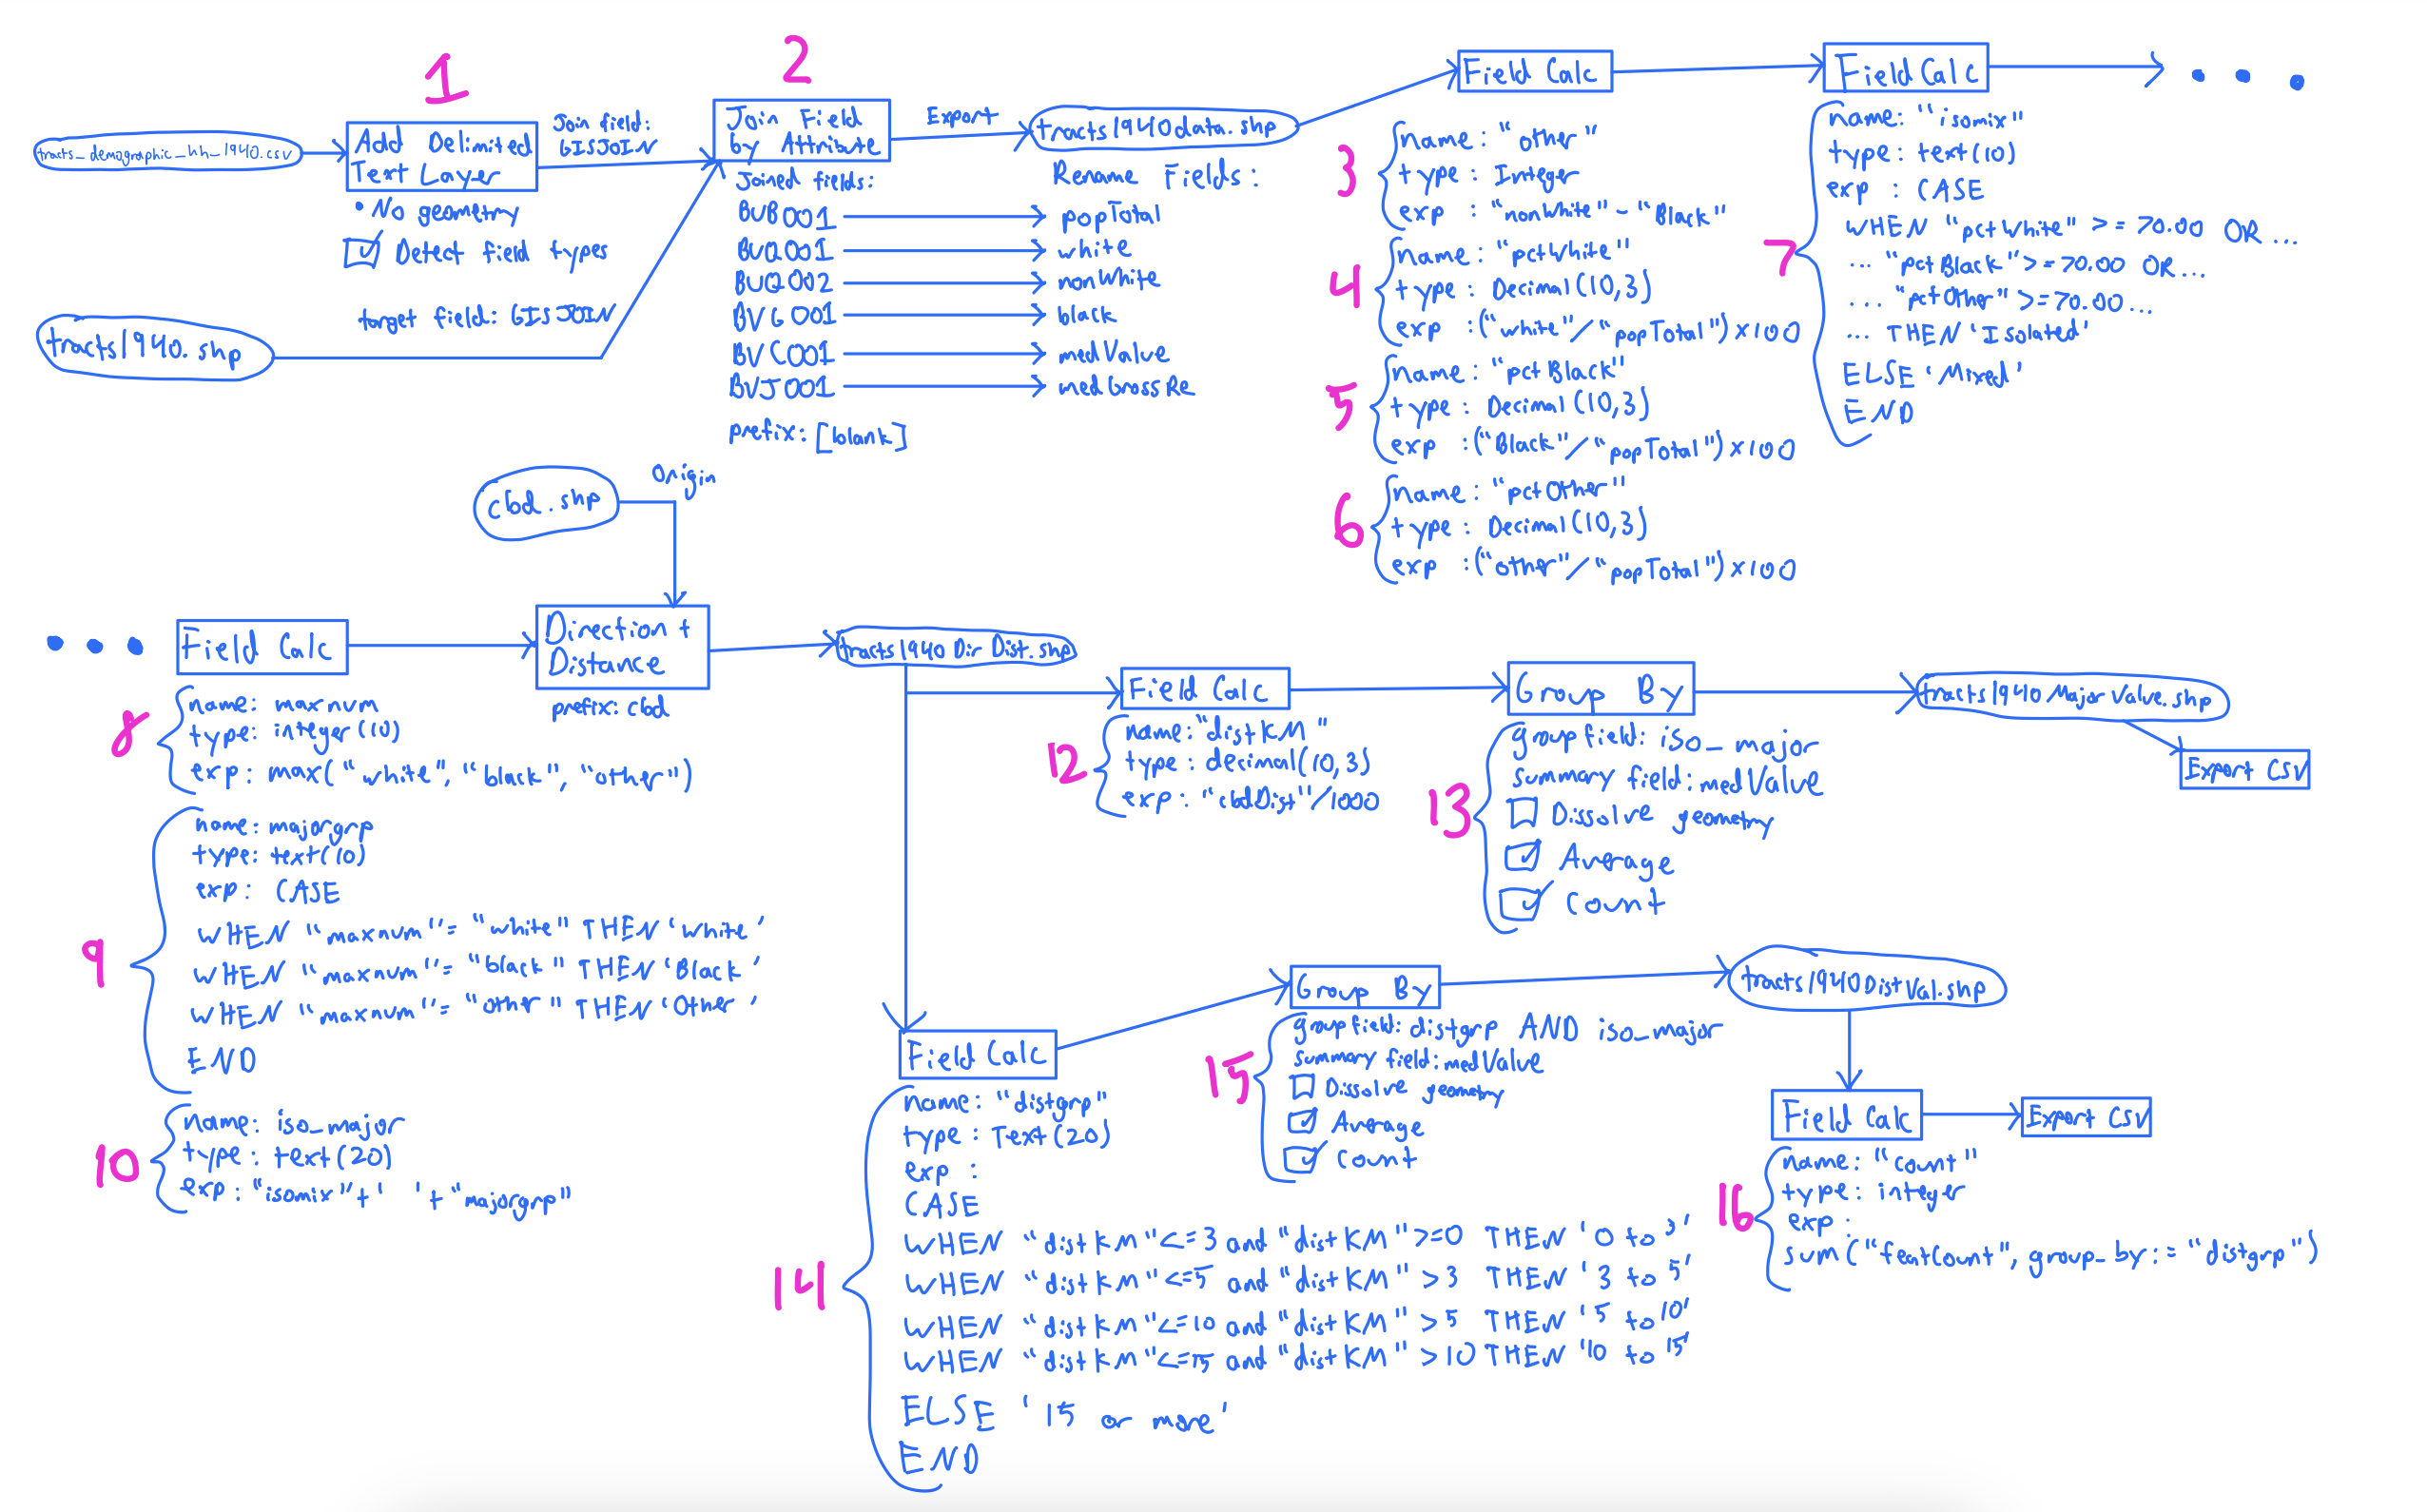 1
2
tracts_demographic_hh_1940.csv
Add Delimited
Text Layer
• No geometry
Detect field types
Join field:
GISJOIN
target field: GISJOIN
tracts1940.shp
Join Field
by Attribute
Joined fields:
BUB001
BUQ001
BUQ002
BVG001
BVC001
BVJ001
prefix: [blank]
Export
tracts1940data.shp
Rename Fields:
popTotal
white
nonWhite
black
medValue
medGrossRe
Field Calc
3
name: "other"
type: Integer
exp : "nonWhite" - "Black"
4
name: "pctWhite"
type: Decimal(10,3)
exp :("white"/"popTotal")x100
5
name: "pctBlack"
type: Decimal(10,3)
exp :("Black"/"popTotal")x100
6
name: "pctOther"
type: Decimal(10,3)
exp :("other"/"popTotal")x100
Field Calc
...
7
name: "isomix"
type: text(10)
exp : CASE
WHEN "pctWhite" >= 70.00 OR...
... "pctBlack">=70.00 OR...
... "pctOther" >=70.00...
... THEN 'Isolated'
ELSE 'Mixed'
END
cbd.shp
Origin
...
Field Calc
8
name: maxnum
type: integer(10)
exp: max("white","black","other")
9
name: majorgrp
type: text(10)
exp: CASE
WHEN "maxnum"= "white" THEN 'White'
WHEN "maxnum"= "black" THEN 'Black'
WHEN "maxnum"= "other" THEN 'Other'
END
10
name: iso_major
type: text(20)
exp: "isomix"+' '+"majorgrp"
Direction +
Distance
prefix: cbd
tracts1940DirDist.shp
Field Calc
12
name:"distKM"
type: decimal(10,3)
exp: "cbdDist"/1000
Group By
13
group field: iso_major
summary field: medValue
Dissolve geometry
Average
Count
tracts1940MajorValue.shp
Export CSV
Field Calc
14
name: "distgrp"
type: Text(20)
exp :
CASE
WHEN "distKM"<=3 and "distKM">=0 THEN '0 to 3'
WHEN "distKM"<=5 and "distKM">3 THEN '3 to 5'
WHEN "distKM"<=10 and "distKM">5 THEN '5 to 10'
WHEN "distKM"<=15 and "distKM">10 THEN '10 to 15'
ELSE '15 or more'
END
Group By
15
group field: distgrp AND iso_major
summary field: medValue
Dissolve geometry
Average
Count
tracts1940DistVal.shp
Field Calc
Export CSV
16
name: "count"
type: integer
exp :
sum("featCount", group_by:= "distgrp")